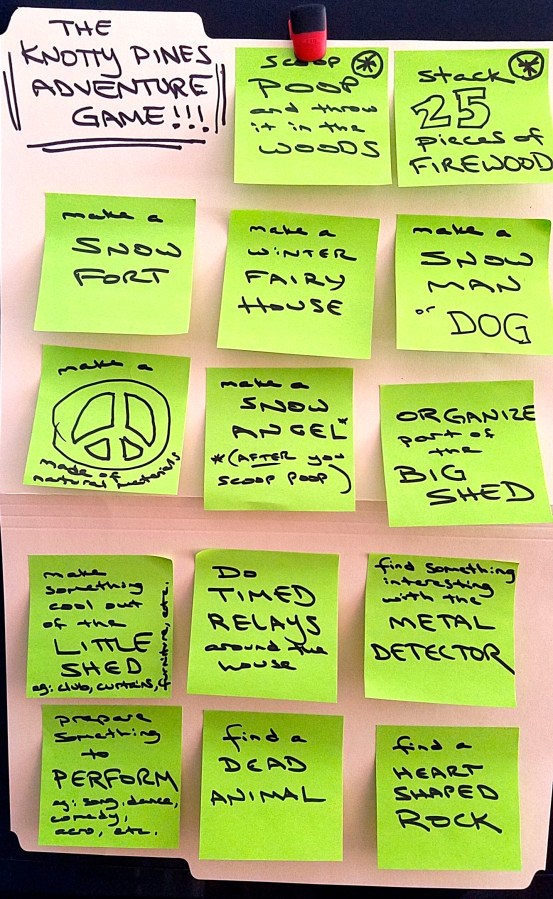 THE
KNOTTY PINES
ADVENTURE
GAME!!!
scoop
POOP
and throw
it in the
WOODS
stack
25
pieces of
FIREWOOD
make a
SNOW
FORT
make a
WINTER
FAIRY
HOUSE
make a
SNOW
MAN
or DOG
make a
made of
natural materials
make a
SNOW
ANGEL*
*(AFTER you
scoop poop)
ORGANIZE
part of
the
BIG
SHED
make
something
cool out
of the
LITTLE
SHED
eg: club, curtains,
furniture, etc.
DO
TIMED
RELAYS
around the
house
find something
interesting
with the
METAL
DETECTOR
prepare
something
to
PERFORM
eg: song, dance,
comedy,
acro, etc.
find a
DEAD
ANIMAL
find a
HEART
SHAPED
ROCK